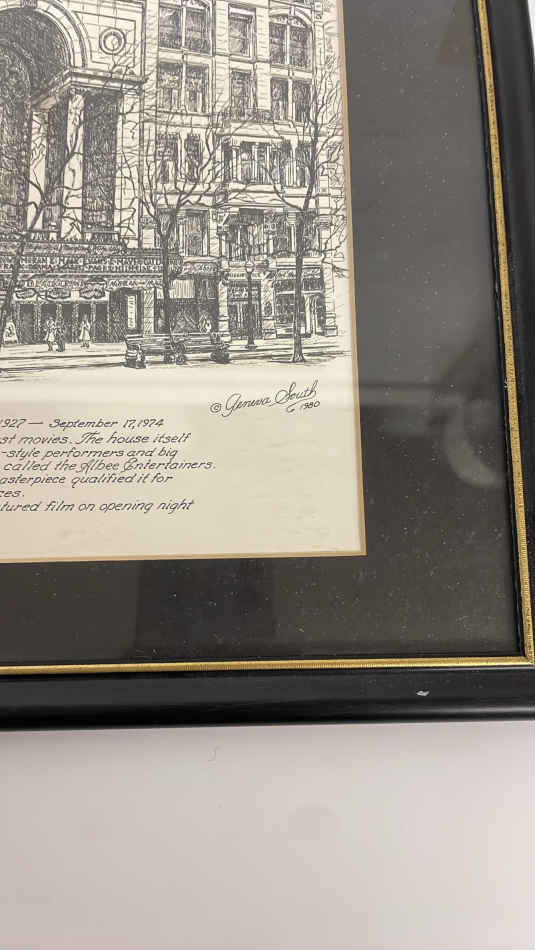 © Geneva South
1980
1927 — September 17, 1974
st movies. The house itself
-style performers and big
called the Albee Entertainers.
asterpiece qualified it for
ces.
tured film on opening night